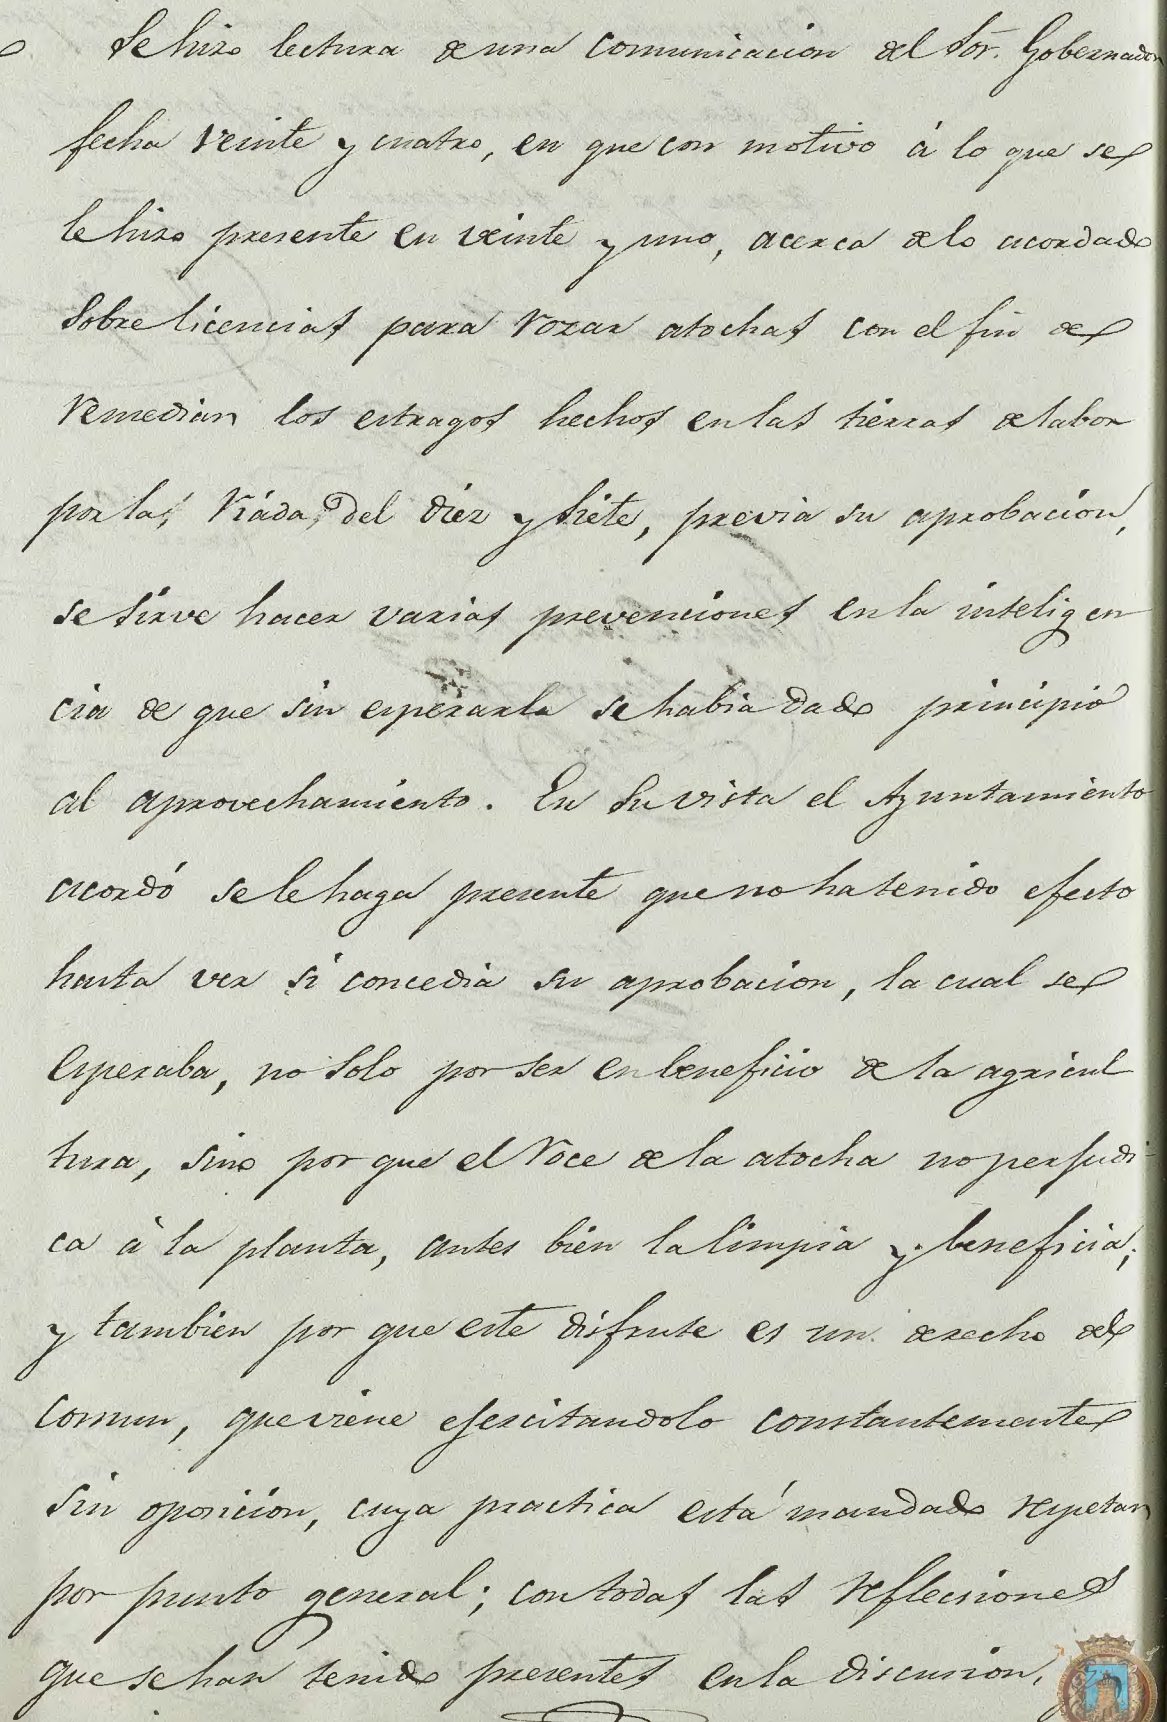 Se hizo lectura de una comunicacion del Sor. Gobernador
fecha veinte y cuatro, en que con motivo á lo que se
le hizo presente en veinte y uno, acerca de lo acordado
sobre licencias para rozar atochas con el fin de
remediar los estragos hechos en las tierras de labor
por la, riáda, del diez y siete, previa su aprobacion,
se sirve hacer varias prevenciones en la inteligen
cia de que sin esperarla se habia dado principio
al aprovechamiento. En su vista el Ayuntamiento
acordó se le haga presente que no ha tenido efecto
hasta ver si concedia su aprobacion, la cual se
esperaba, no solo por ser en beneficio de la agricul
tura, sino por que el roce de la atocha no perjudi-
ca á la planta, antes bien la limpia y beneficia;
y tambien por que este disfrute es un derecho del
comun, que viene ejercitandolo constantemente
sin oposicion, cuya practica está mandado respetar
por punto general; con todas las reflecsiones
que se han tenido presentes en la discusion,